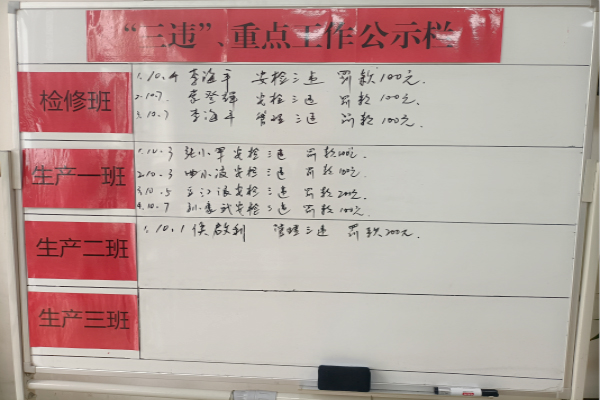 “三违”、重点工作公示栏
检修班
1.10.4 李海平 安检三违 罚款100元.
2.10.7. 登辉 安检三违 罚款100元.
3.10.7 李海平 管理三违 罚款100元.
生产一班
1.10.3 张小军安检三违 罚款100元.
2.10.3 小凌安检三违 罚款100元.
3.10.5 王江浪安检三违 罚款200元.
4.10.7 孙武安检三违 罚款100元.
生产二班
1.10.1 侯启利 管理三违 罚款200元.
生产三班